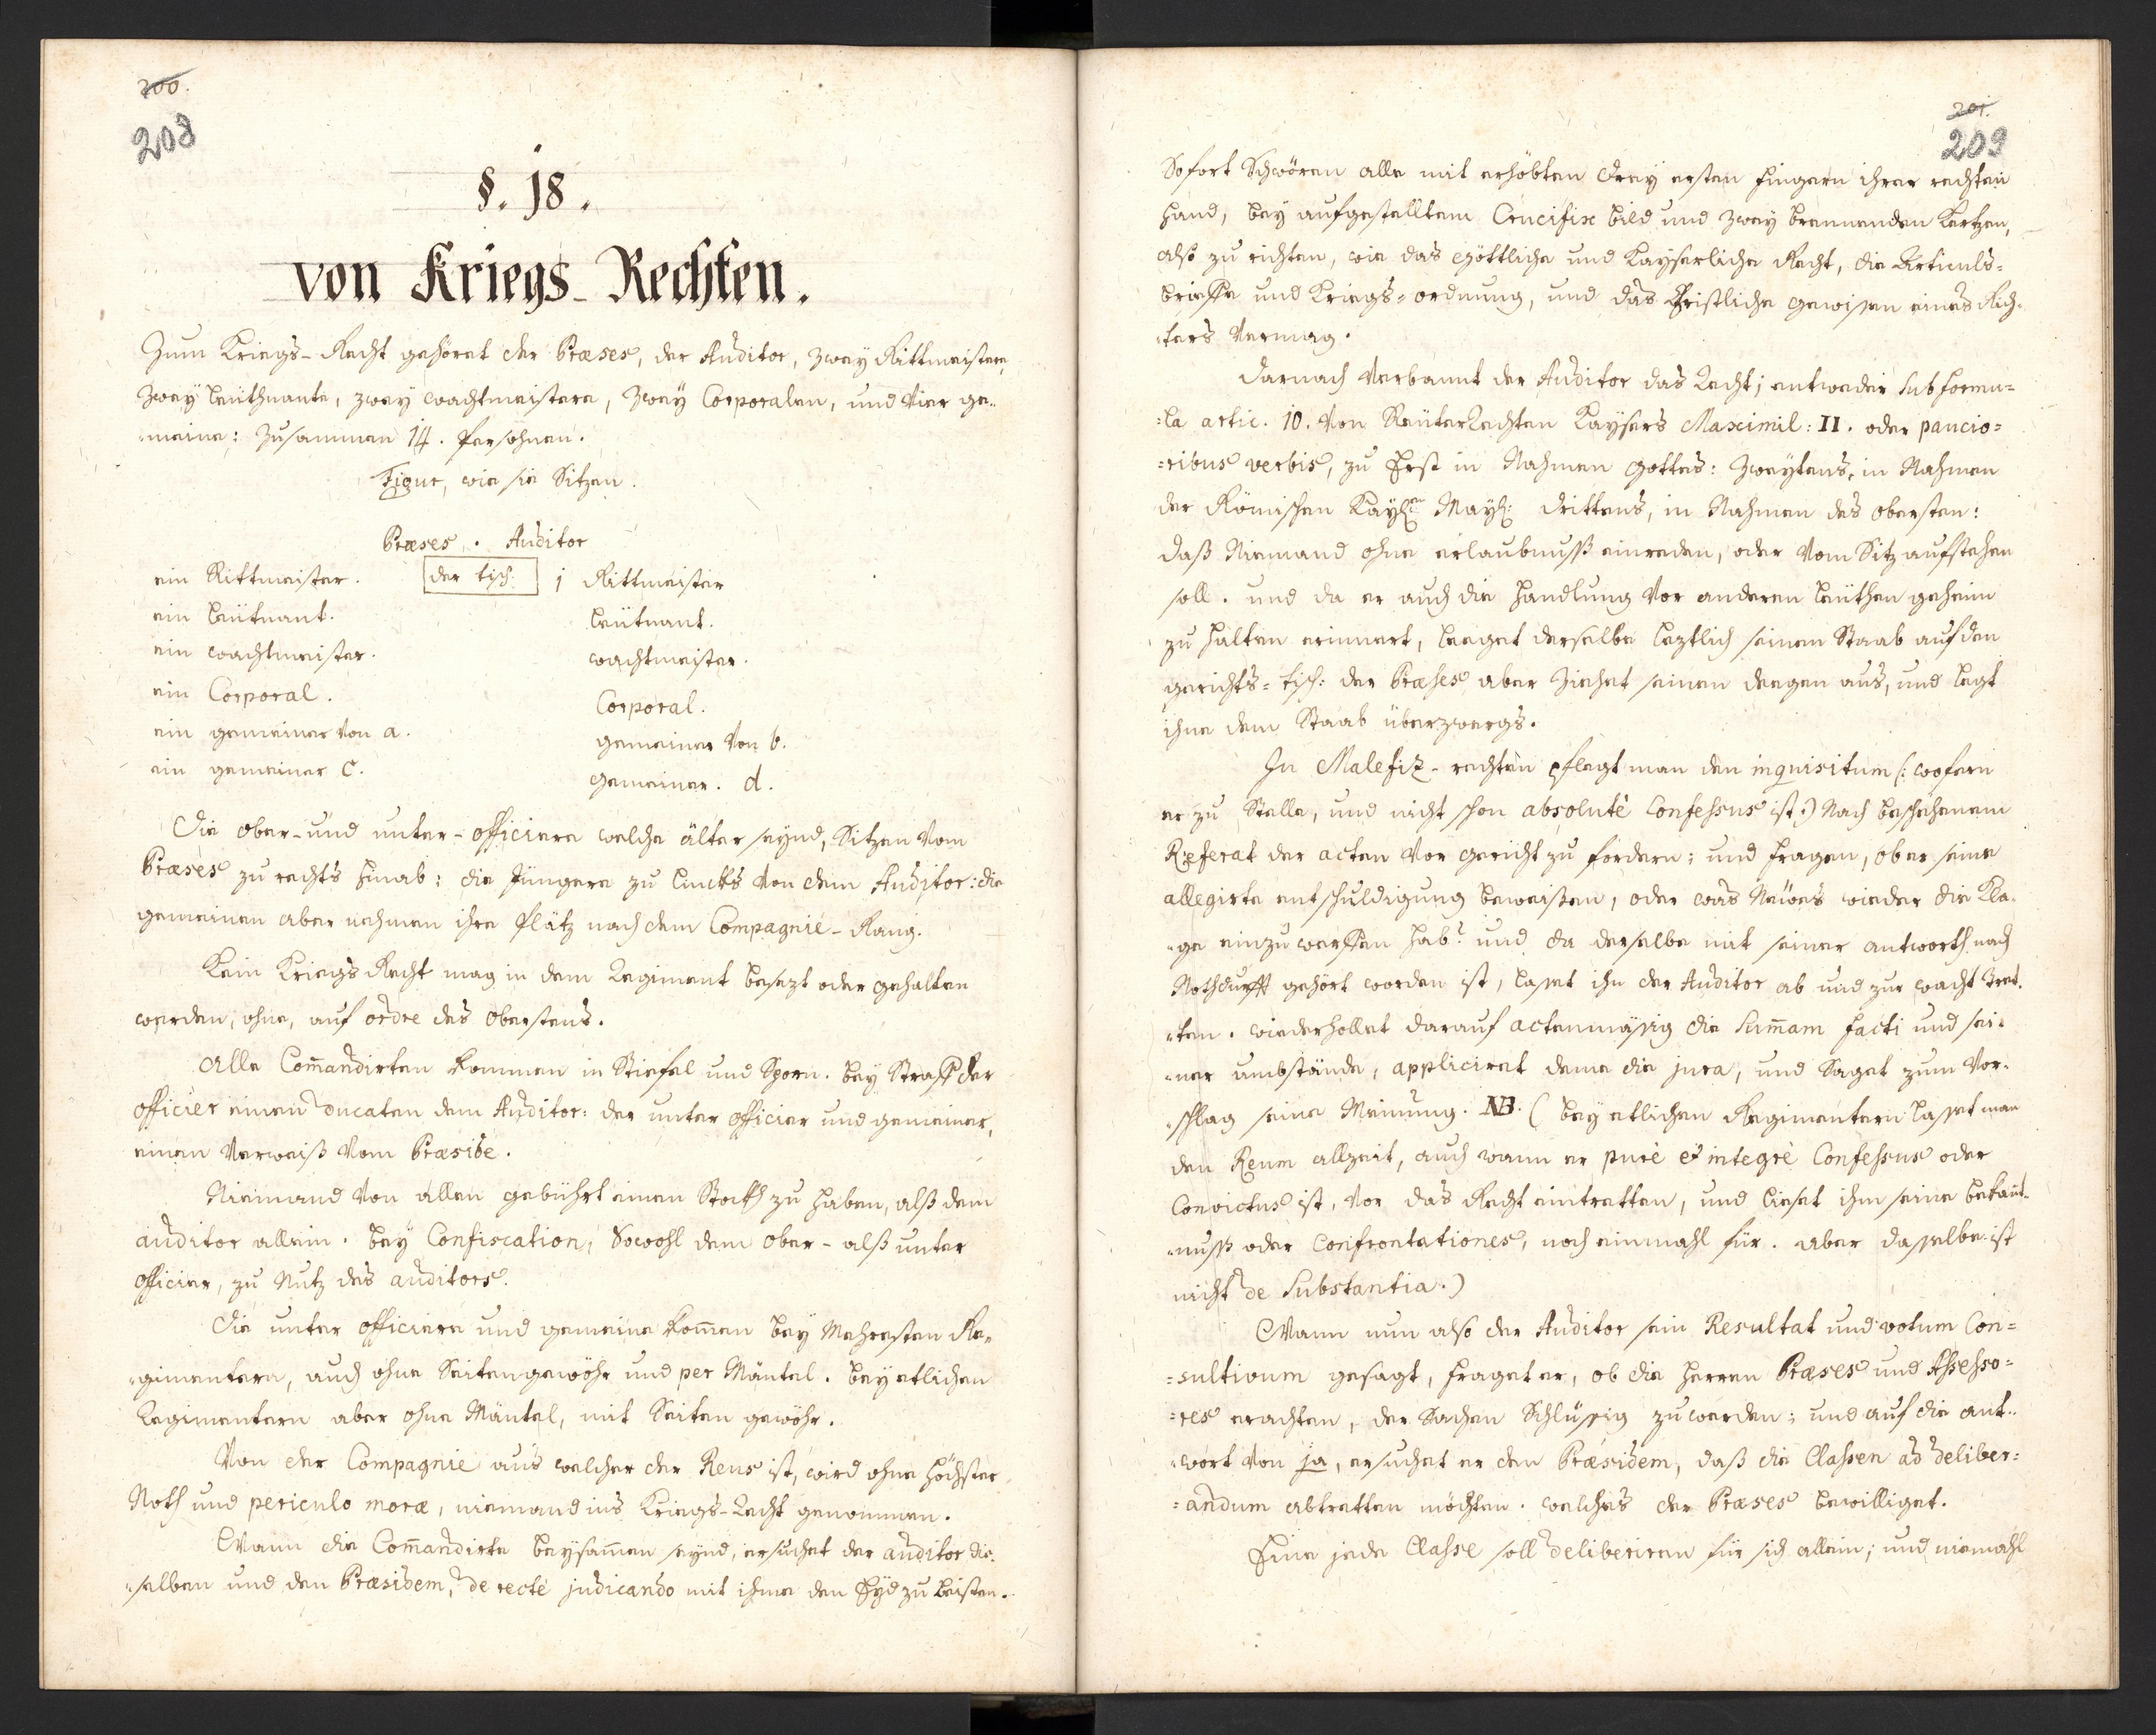 200.
208
§. 18.
von Kriegs-Rechten.
Zum Kriegs-Recht gehöret der Præses, der Auditor, zwey Rittmeistere,
zwey Leuthnante, zwey wachtmeistere, zwey Corporalen, und Vier ge-
-meine: Zusammen 14. Persohnen.
Figur, wie sie Sitzen.
Præses. Auditor
ein Rittmeister. der tisch: 1 Rittmeister
ein Leütnant. Leütnant.
ein wachtmeister. wachtmeister.
ein Corporal. Corporal.
ein gemeiner Von a. gemeiner Von b.
ein gemeiner C. gemeiner. d.
Die ober- und unter-officiere welche älter seynd, Sitzen Vom
Præses zu rechts hinab: die Jüngere zu lincks Von dem Auditor: die
gemeinen aber nehmen ihre Plätz nach dem Compagnie-Rang.
Kein Kriegs Recht mag in dem Regiment besezt oder gehalten
werden, ohne, auf ordre des Obersten's.
Alle Com̄andirten kommen in Stiefel und Sporn. bey Straff der
officier einen Ducaten dem Auditor: der unter officier und gemeiner,
einen Verweiß Vom Præside.
Niemand Von allen gebührt einen Stockh zu haben, alß dem
auditor allein. bey Confiscation, Sowohl dem Ober- alß unter
officier, zu Nutz des auditors.
Die unter officiere und gemeine kom̄en bey Mehresten Re-
-gimentern, auch ohne Seitengewöhr und per Mäntel. bey etlichen
Regimentern aber ohne Mäntel, mit Seiten gewöhr.
Von der Compagnie aus welcher der Reus ist, wird ohne höchster
Noth und periculo moræ, niemand ins Kriegs-Recht genommen.
Wann die Com̄andirte beysam̄en seynd, ersuchet der auditor die-
-selben und den Præsidem, de rectè judicando mit ihme den Eyd zu leisten.
201.
209
Sofort Schwören alle mit erhöbten drey ersten Fingern ihrer rechten
hand, bey aufgestelltem Crucifix bild und zwey brennenden kertzen,
also zu richten, wie das göttliche und Kayserliche Recht, die Articuls-
brieffe und Kriegs-ordnung, und das Christliche gewissen eines Rich-
-ters Vermag.
Darnach Verbannt der Auditor das Recht; entweder sub formu-
-la artic. 10. Von Reüter Rechten Kaysers Maximil: II. oder paucio-
-ribus verbis, zu Erst in Nahmen gottes: Zweytens, in Nahmen
der Römischen Kayl:n May: drittens, in Nahmen des Obersten:
daß Niemand ohne erlaubnuß einreden, oder Vom Sitz aufstehen
soll. und da er auch die handlung Vor anderen Leüthen geheim
zu halten erinnert, leeget derselbe leztlich seinen Staab auf den
gerichts-tisch: der Præses aber ziehet seinen deegen aus, und legt
ihne dem Staab überzwergs.
In Malefiz-rechten pflegt man den inquisitum (: wofern
er zu Stelle, und nicht schon absolutè Confessus ist:) Nach beschehenem
Referat der acten Vor gericht zu fordern; und fragen, ob er seine
allegirte entschuldigung beweißen, oder was Neües wieder die Kla-
-ge einzuwerffen hab? und da derselbe mit seiner antworth nach
Nothdurfft gehört worden ist, lasset ihn der Auditor ab und zur wacht tret-
-ten. wiederhollet darauf actenmäsig die Sum̄am facti und sei-
-ner umbstände, appliciret deme die jura, und Saget zum Vor-
-schlag seine Meinung. NB. (bey etlichen Regimentern lasset man
den Reum allzeit, auch wann er purè et integrè Confessus oder
Convictus ist, Vor das Recht eintretten, und lieset ihm seine bekant-
-nuß oder Confrontationes, noch einmahl für. aber dasselbe ist
nicht de Substantia.)
Wann nun also der Auditor sein Resultat und votum Con-
-sultivum gesagt, fraget er, ob die herren Præses und Assesso-
-res erachten, der Sachen Schlüssig zu werden; und auf die ant-
-wort Von ja, ersuchet er den Præsidem, daß die Classen ad deliber-
-andum abtretten möchten. welches der Præses bewilliget.
Eine jede Classe soll deliberiren für sich allein; und niemahl